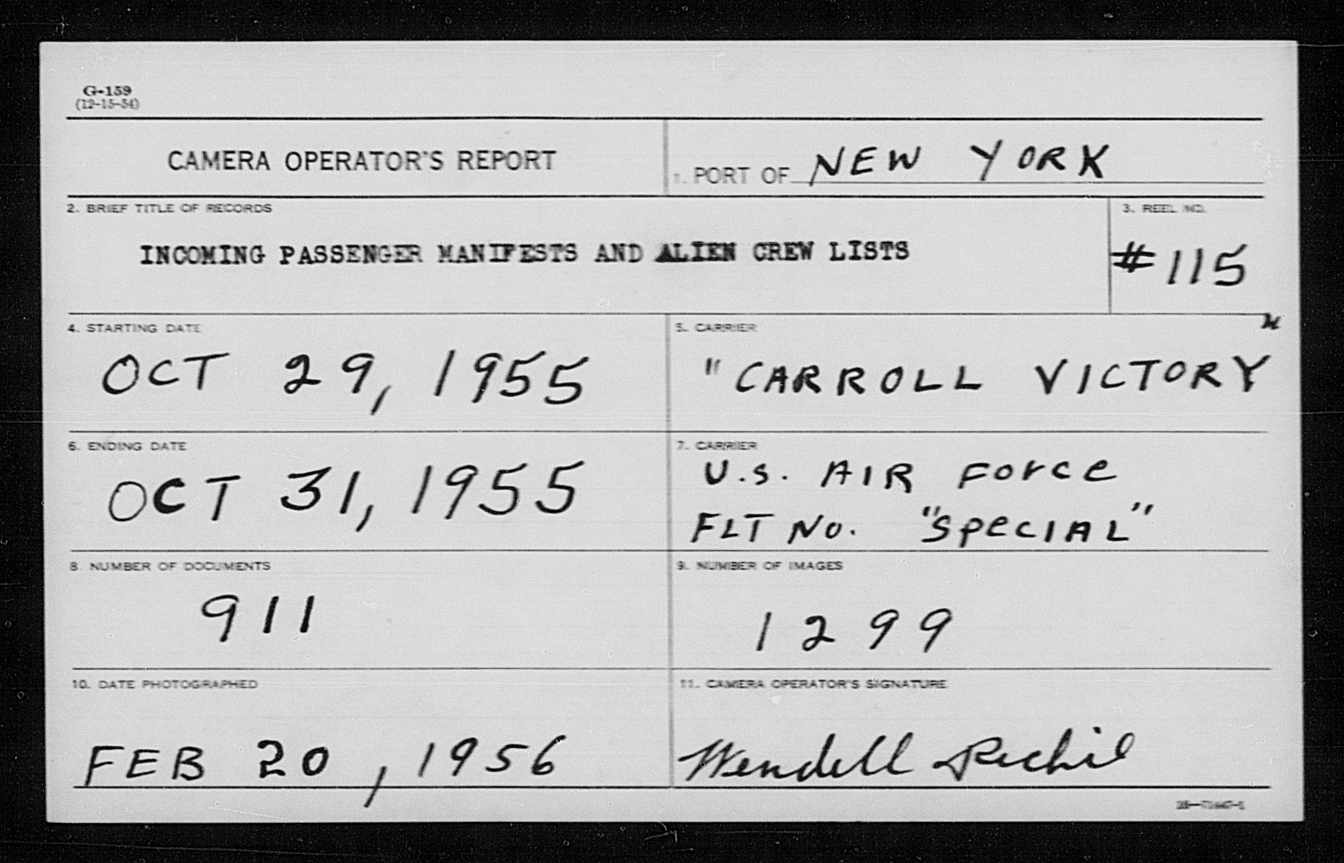 G-159
(12-15-54)
CAMERA OPERATOR'S REPORT
1. PORT OF NEW YORK
2. BRIEF TITLE OF RECORDS
3. REEL NO.
INCOMING PASSENGER MANIFESTS AND ALIEN CREW LISTS
#115
4. STARTING DATE
OCT 29, 1955
5. CARRIER
"CARROLL VICTORY"
6. ENDING DATE
OCT 31, 1955
7. CARRIER
U.S. AIR Force
FLT No. "SpecIAL"
8. NUMBER OF DOCUMENTS
911
9. NUMBER OF IMAGES
1299
10. DATE PHOTOGRAPHED
FEB 20, 1956
11. CAMERA OPERATOR'S SIGNATURE
Wendell